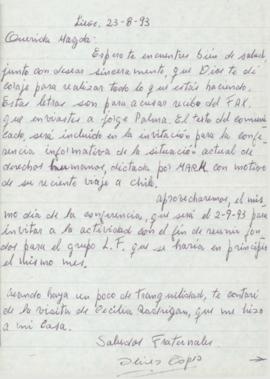 23-8-93
Querida Magda:
Espero te encuentres bien de salud
junto con desear sinceramente, que Dios te dé
coraje para realizar todo lo que estás haciendo.
Estas letras son para acusar recibo del FAX,
que enviastes a Jorge Palma. El texto del comuni-
cado, será incluido en la invitación para la confe-
rencia informativa de la situación actual de
derechos humanos, dictada por MARK con motivo
de su reciente viaje a Chile.
Aprovecharemos el mis
mo día de la conferencia, que será el 2-9-93 para
invitar a la actividad con el fin de reunir fon-
dos para el grupo L.F. que se haría en principio
el mismo mes.
Cuando haya un poco de tranquilidad, te contaré
de la visita de Cecilia Radrigan, que me hizo
a mi casa.
Saludos Fraternales